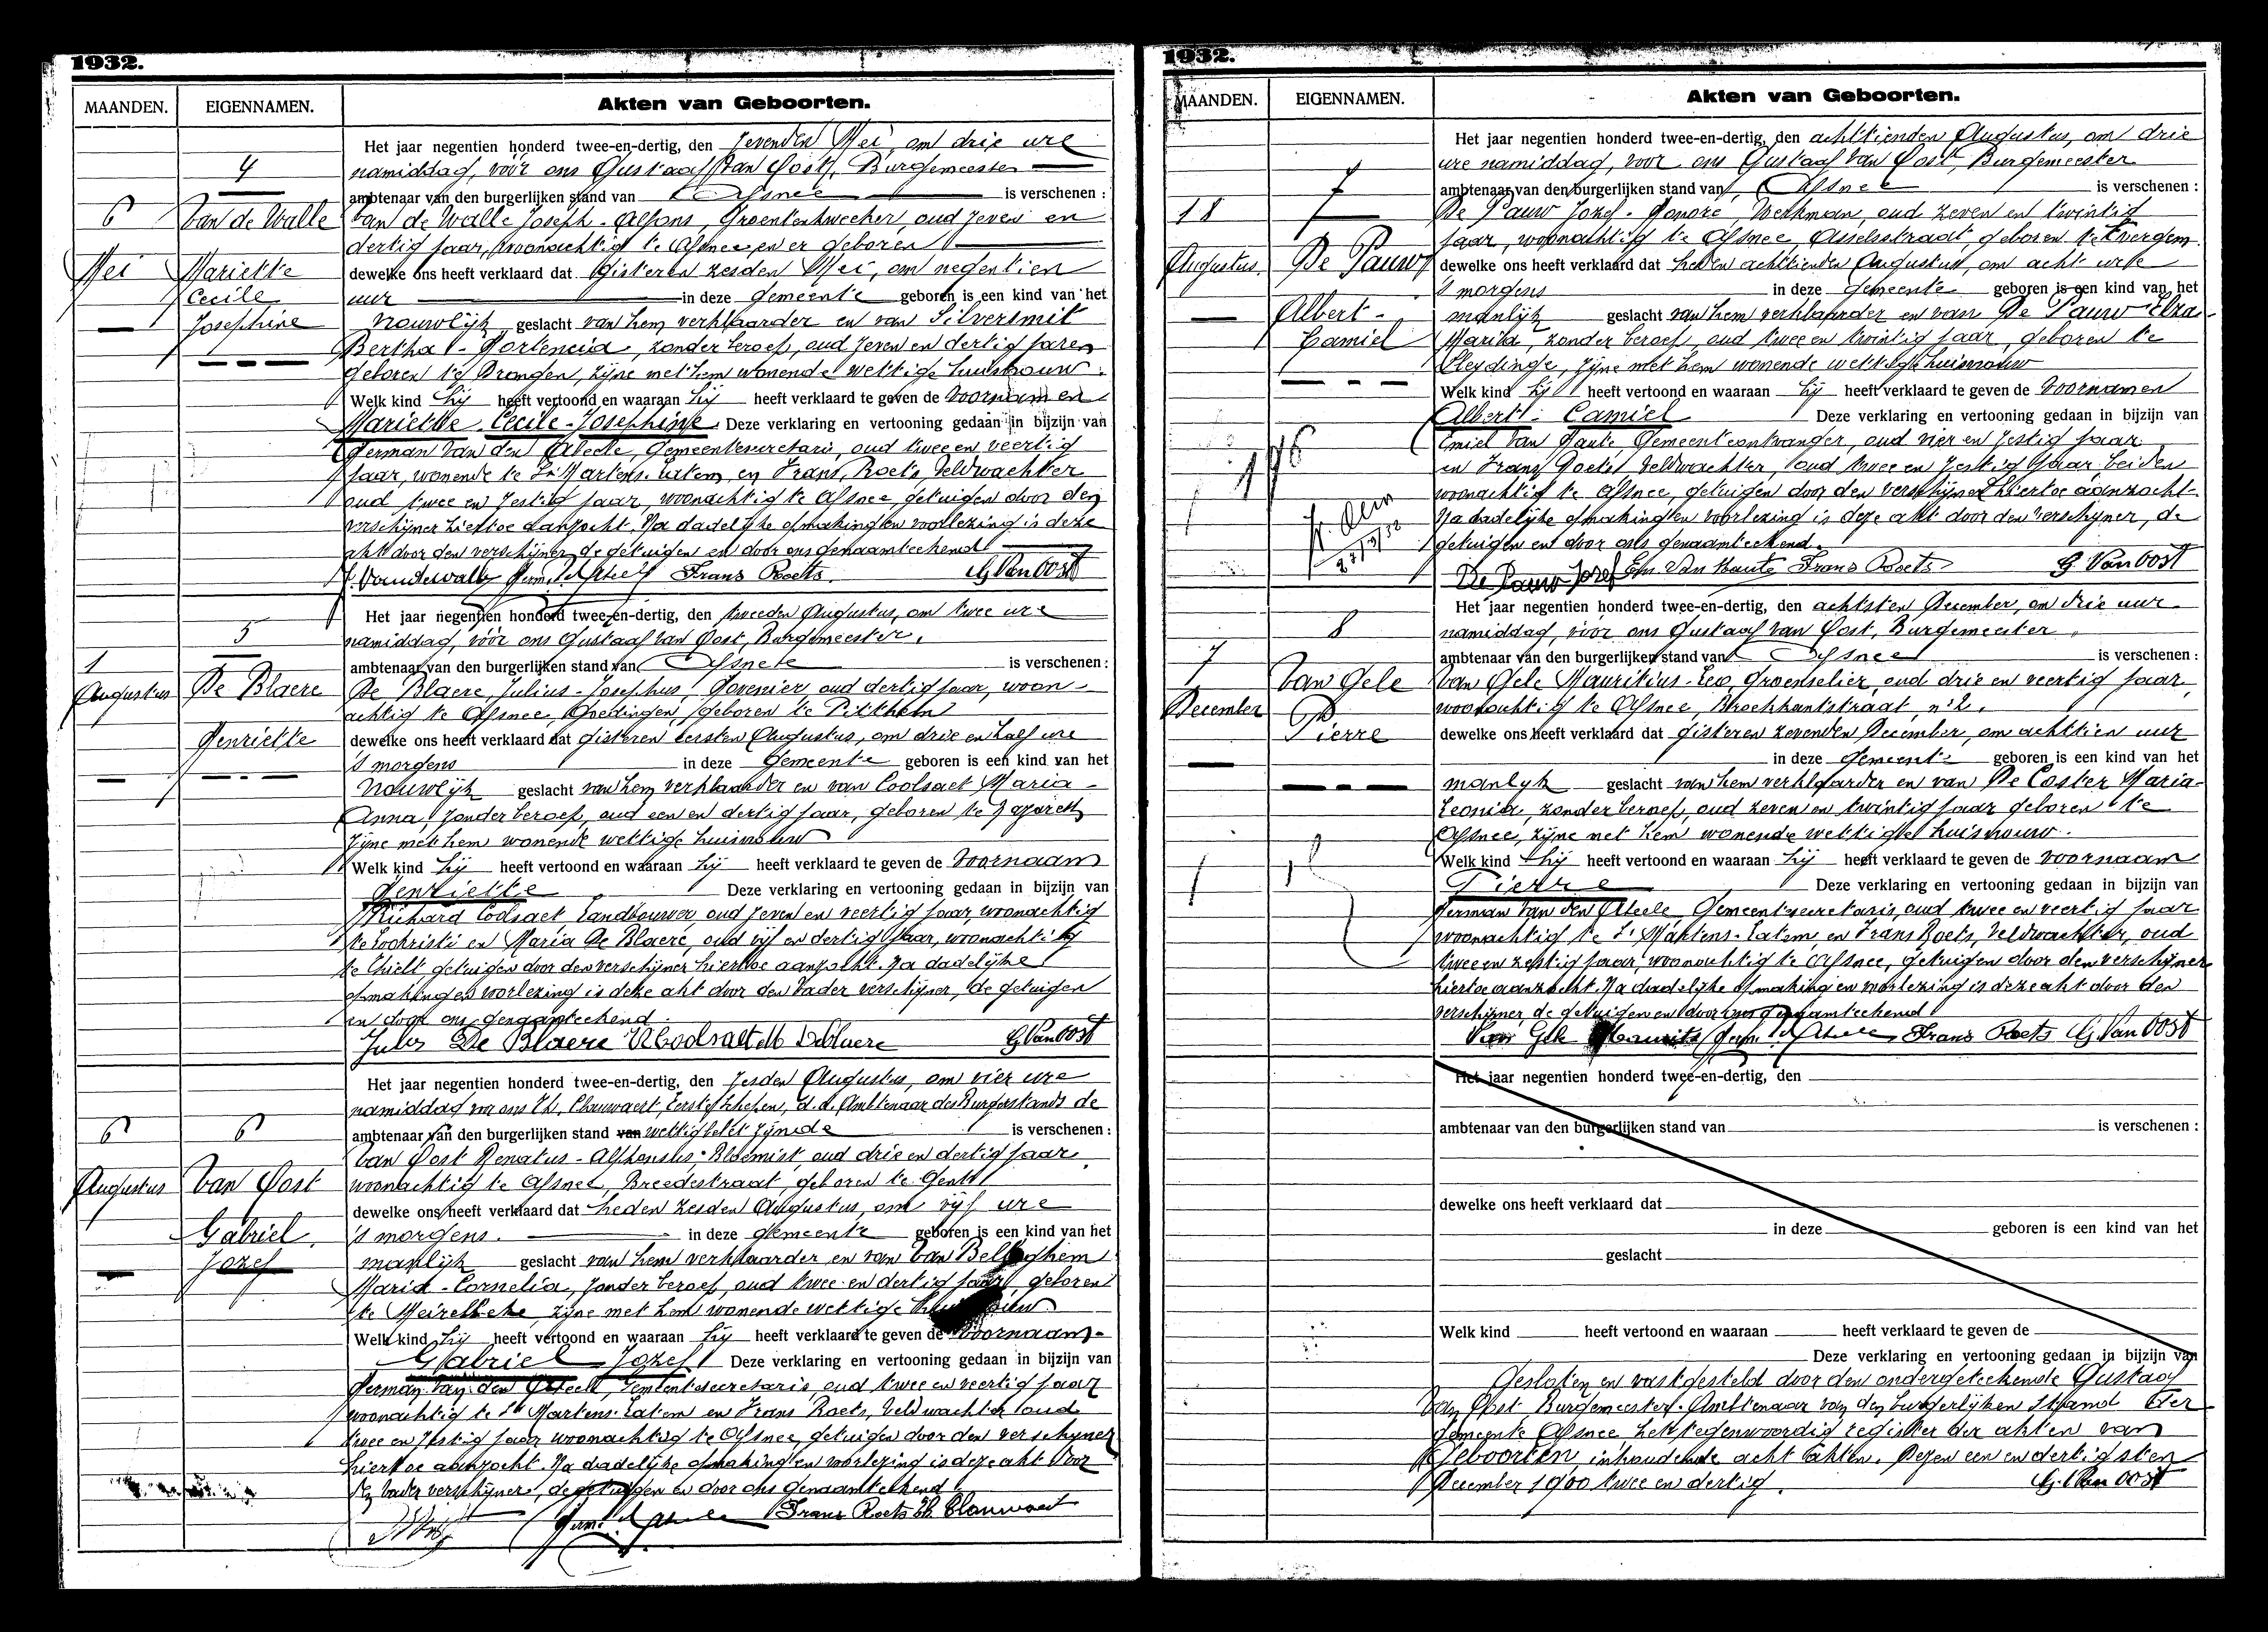 1932.
MAANDEN. EIGENNAMEN. Akten van Geboorten.
4
6
Mei
Van de Walle
Mariette
Cecile
Josephine
Het jaar negentien honderd twee-en-dertig, den zevenden Mei, om drie ure
namiddag, vóór ons Gustaaf Van Oost, Burgemeester
ambtenaar van den burgerlijken stand van Afsnee is verschenen :
Van de Walle Joseph-Alfons, Groentenkweeker, oud zeven en
dertig jaar, woonachtig te Afsnee en er geboren
dewelke ons heeft verklaard dat gisteren zesden Mei, om negentien
uur in deze gemeente geboren is een kind van het
vrouwlijk geslacht van hem verklaarder en van Silversmit
Bertha-Hortencia, zonder beroep, oud zeven en dertig jaren
geboren te Drongen, zijne met hem wonende wettige huisvrouw.
Welk kind hij heeft vertoond en waaraan hij heeft verklaard te geven de voornamen
Mariette Cecile-Josephine Deze verklaring en vertooning gedaan in bijzijn van
Herman Van den Abeele, Gemeentesecretaris, oud twee en veertig
jaar, wonende te St Martens-Latem, en Frans Roets, Veldwachter
oud twee en zestig jaar, woonachtig te Afsnee, getuigen door den
verschijner hiertoe aanzocht. Na dadelijke opmaking en voorlezing is deze
akt door den verschijner, de getuigen en door ons genaamteekend
J. Vandewalle Frans Roets. G Van Oost
5
1
Augustus
De Blaere
Henriette
Het jaar negentien honderd twee-en-dertig, den tweeden Augustus, om twee ure
namiddag, vóór ons Gustaaf Van Oost, Burgemeester,
ambtenaar van den burgerlijken stand van Afsnee is verschenen :
De Blaere, Julius-Josephus, Hovenier, oud dertig jaar, woon-
achtig te Afsnee, Goedingen, geboren te Pitthem
dewelke ons heeft verklaard dat gisteren eersten Augustus, om drie en half ure
's morgens in deze gemeente geboren is een kind van het
vrouwlijk geslacht van hem verklaarder en van Coolsaet Maria-
Anna zonder beroep, oud een en dertig jaar, geboren te
zijne met hem wonende wettige huisvrouw
Welk kind hij heeft vertoond en waaraan hij heeft verklaard te geven de voornaam
Henriette Deze verklaring en vertooning gedaan in bijzijn van
Richard Coolsaet Landbouwer, oud zeven en veertig jaar, woonachtig
te Lochristi en Maria De Blaere, oud vijf en dertig jaar, woonachtig
te Thielt getuigen door den verschijner hiertoe aanzocht. Na dadelijke
opmaking en voorlezing is deze akt door den vader verschijner, de getuigen
en door ons genaamteekend.
Jules De Blaere R Coolsaet M DeBlaere G. Van Oost
6
6
Augustus
Van Oost
Gabriel
Jozef
Het jaar negentien honderd twee-en-dertig, den zesden Augustus, om vier ure
namiddag vor ons Th. Clauwaert, Eerste Schepen, d.d. Ambtenaar des Burgerstands de
ambtenaar van den burgerlijken stand van wettig belet zijnde is verschenen :
Van Oost Renatus-Alphonsus, Bloemist, oud drie en dertig jaar,
woonachtig te Afsnee, Breedestraat, geboren te Gent
dewelke ons heeft verklaard dat heden zesden Augustus, om vijf ure
's morgens. in deze gemeente geboren is een kind van het
manlijk geslacht van hem verklaarder en van Van Belleghem
Maria-Cornelia, zonder beroep, oud twee en dertig jaar, geboren
te Meirelbeke, zijne met hem wonende wettige huisvrouw
Welk kind hij heeft vertoond en waaraan hij heeft verklaard te geven de voornaam-
Gabriel Jozef Deze verklaring en vertooning gedaan in bijzijn van
Herman Van den Abeele, Gemeentesecretaris, oud twee en veertig jaar
woonachtig te St Martens-Latem en Frans Roets, Veldwachter oud
twee en zestig jaar woonachtig te Afsnee, getuigen door den verschijner
hiertoe aanzocht. Na dadelijke opmaking en voorlezing is deze akt door
den vader verschijner, de getuigen en door ons genaamteekend.
Frans Roets Th. Clauwaert
1932.
MAANDEN. EIGENNAMEN. Akten van Geboorten.
7
18
Augustus
De Pauw
Albert-
Camiel
Het jaar negentien honderd twee-en-dertig, den achttienden Augustus, om drie
ure namiddag, voor ons Gustaaf Van Oost, Burgemeester
ambtenaar van den burgerlijken stand van Afsnee is verschenen :
De Pauw Jozef-Honoré, Werkman, oud zeven en twintig
jaar, woonachtig te Afsnee, Asselsstraat, geboren te Evergem
dewelke ons heeft verklaard dat heden achttienden Augustus, om acht ure
's morgens in deze gemeente geboren is een kind van het
manlijk geslacht van hem verklaarder en van De Pauw Elza-
Maria, zonder beroep, oud twee en twintig jaar, geboren te
Sleydinge, zijne met hem wonende wettige huisvrouw
Welk kind hij heeft vertoond en waaraan hij heeft verklaard te geven de voornamen
Albert-Camiel Deze verklaring en vertooning gedaan in bijzijn van
Emiel Van Haute, Gemeenteontvanger, oud vier en zestig jaar
en Frans Roets Veldwachter, oud twee en zestig jaar beiden
woonachtig te Afsnee, getuigen door den verschijner hiertoe aanzocht.
Na dadelijke opmaking en voorlezing is deze akt door den verschijner, de
getuigen en door ons genaamteekend.
De Pauw Jozef Em Van Haute Frans Roets G Van Oost
8
7
December
Van Gele
Pierre
Het jaar negentien honderd twee-en-dertig, den achtsten December, om drie uur
namiddag, vóór ons Gustaaf Van Oost, Burgemeester,
ambtenaar van den burgerlijken stand van Afsnee is verschenen :
Van Gele Mauritius-Leo, Groenselier, oud drie en veertig jaar,
woonachtig te Afsnee, Broekkantstraat, n° 2.
dewelke ons heeft verklaard dat gisteren zevenden December, om achttien uur
in deze gemeente geboren is een kind van het
manlijk geslacht van hem verklaarder en van De Coster Maria-
Leonia, zonder beroep, oud zeven en twintig jaar geboren te
Afsnee, zijne met hem wonende wettige huisvrouw.
Welk kind hij heeft vertoond en waaraan hij heeft verklaard te geven de voornaam
Pierre Deze verklaring en vertooning gedaan in bijzijn van
Herman Van den Abeele, Gemeentesecretaris, oud twee en veertig jaar
woonachtig te St Martens-Latem, en Frans Roets, Veldwachter, oud
twee en zestig jaar, woonachtig te Afsnee, getuigen door den verschijner
hiertoe aanzocht. Na dadelijke opmaking en voorlezing is deze akt door den
verschijner, de getuigen en door ons genaamteekend
Van Gele Maurits Frans Roets G. Van Oost
Het jaar negentien honderd twee-en-dertig, den
ambtenaar van den burgerlijken stand van is verschenen :
dewelke ons heeft verklaard dat
in deze geboren is een kind van het
geslacht
Welk kind heeft vertoond en waaraan heeft verklaard te geven de
Deze verklaring en vertooning gedaan in bijzijn van
Gesloten en vastgesteld door den ondergeteekende Gustaaf
Van Oost Burgemeester-Ambtenaar van den burgerlijken stand der
gemeente Afsnee het tegenwoordig register der akten van
Geboorten, inhoudende acht akten. Dezen een en dertigsten
December 1900 twee en dertig. G. Van Oost